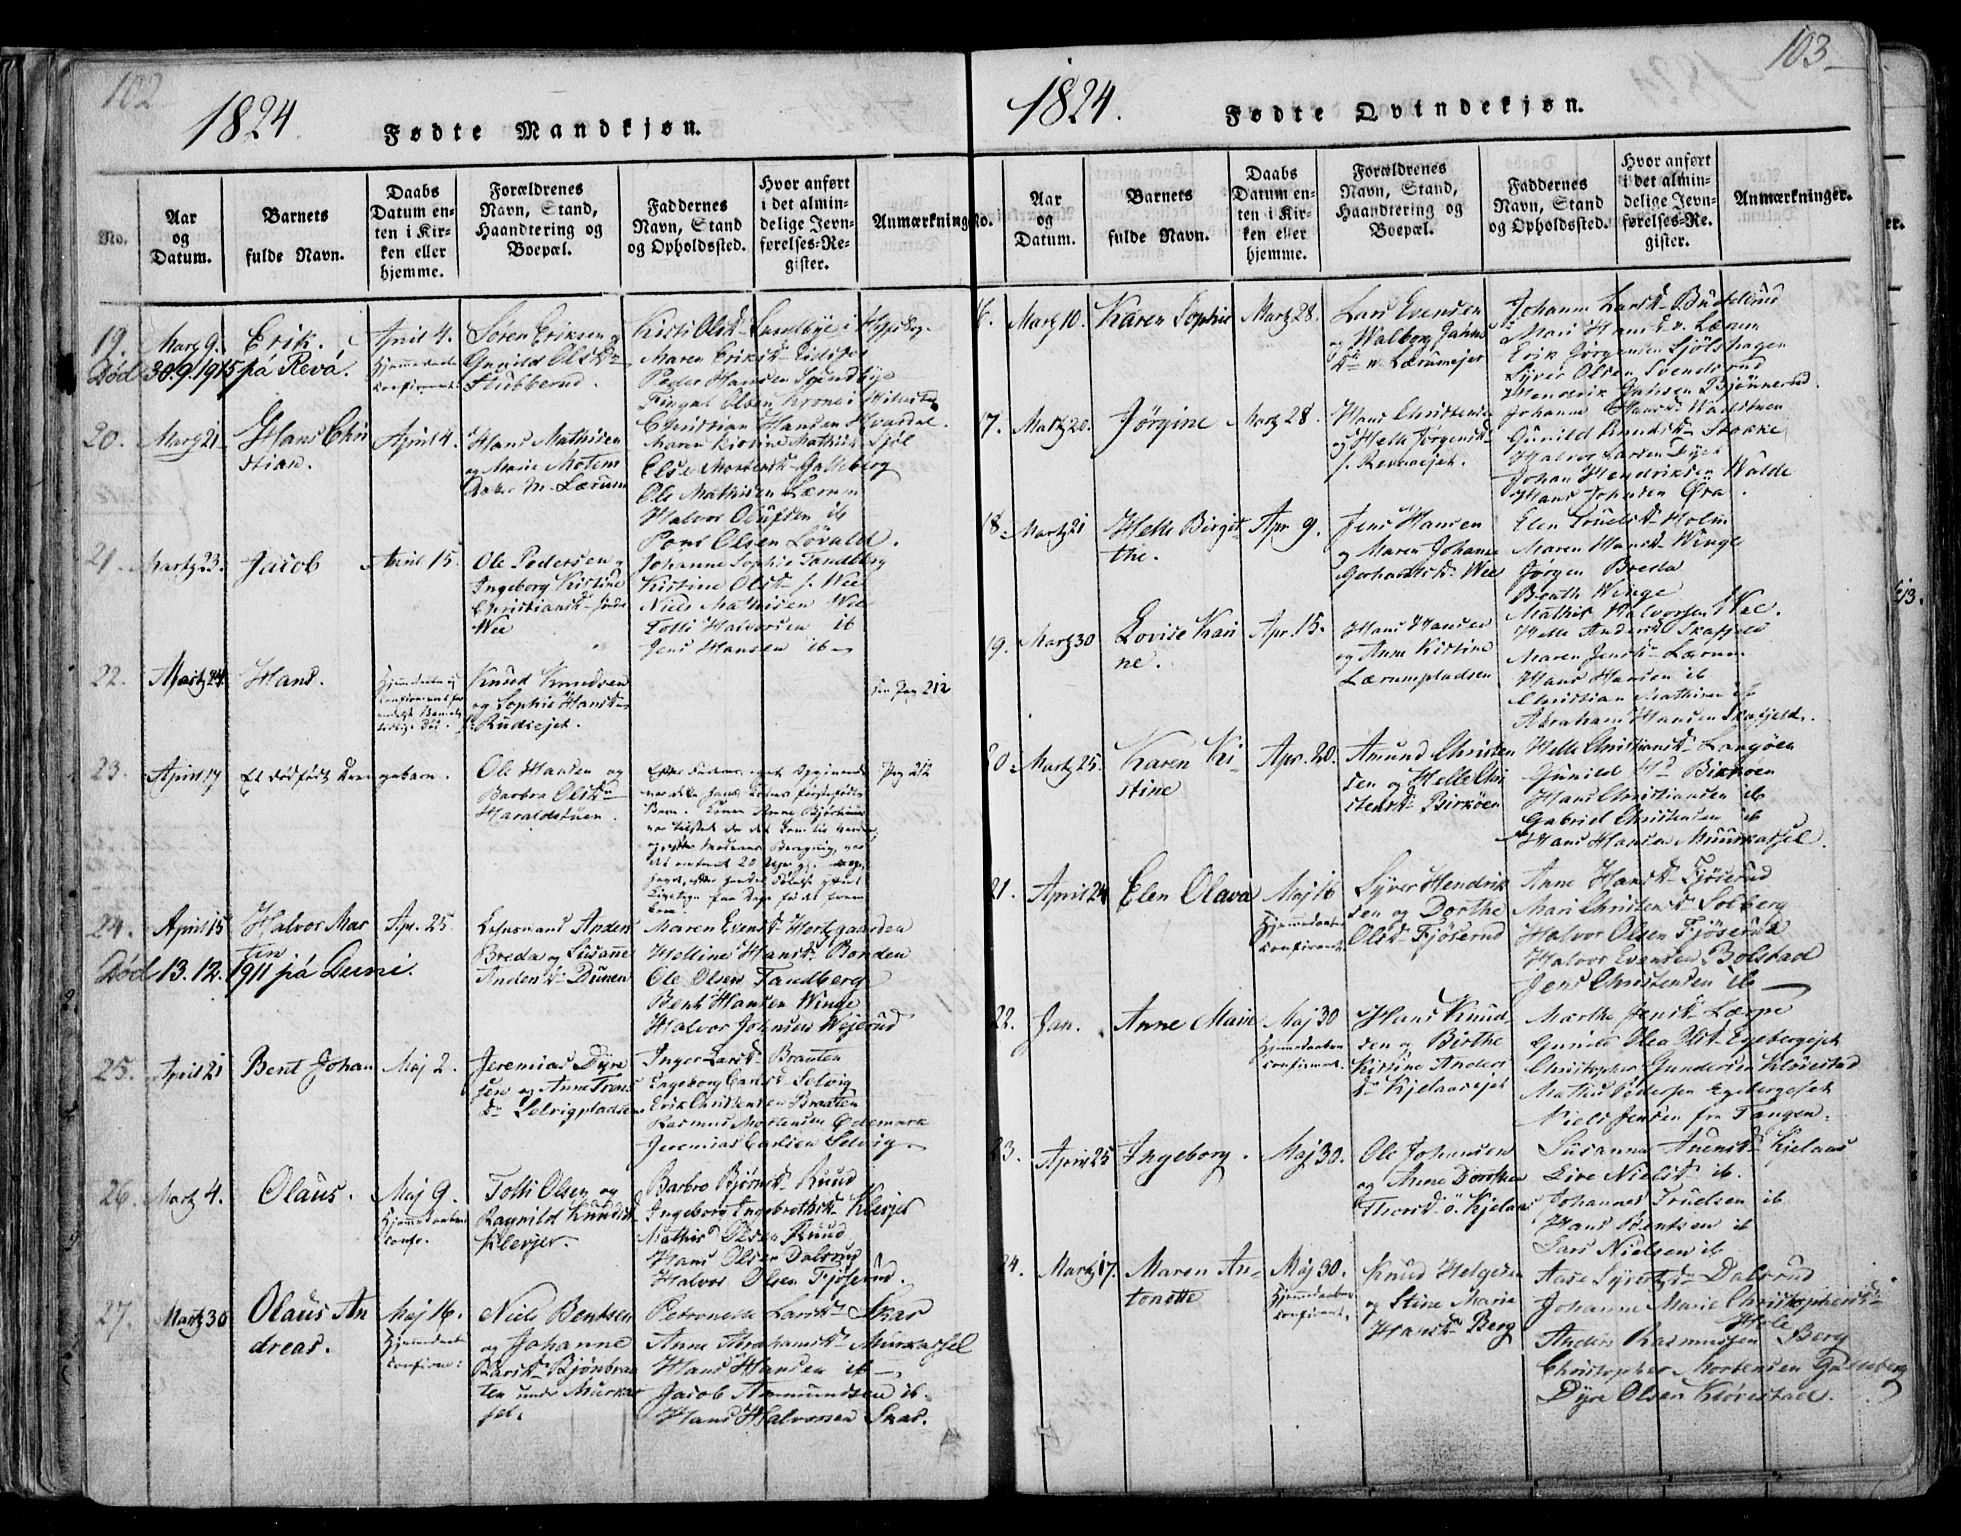 102
1824.
Fødte Mandkjøn.
No.
Aar
og
Datum.
Barnets
fulde Navn.
Daabs
Datum en-
ten i Kir-
ken eller
hjemme.
Forældrenes
Navn, Stand,
Haandtering og
Boepæl.
Faddernes
Navn, Stand
og Opholdssted.
Hvor anført
i det almin-
delige Jevn-
førelses-Re-
gister.
Anmærkning
19.
Martz 9.
Erik.
April 4.
Hjemmedøbt
confirmeret
Søren Eriksen og
Gunild Olsd.
Stubberud.
Kirsti Olsd. Sundbye i Hypestg.
Maren Eriksd. Eidsfos
Peder Hansen Sundbye
Fingal Olsen Krone i
Christian Hansen Hvaldal.
Død 30.9.1915 på Revå.
20.
Martz 21
Hans Chri
stian.
April 4.
Hans Mathisen
og Marie Mortens
Datter M. Lærum
Maren Kirstine Mathisd. Sjøl
Else Mortensd. Galleberg
Ole Mathisen Lærum
Halvor Olufsen ib
Poul Olsen Løvald.
21.
Martz 23.
Jacob
April 15.
Ole Pedersen og
Ingeborg Kirstine
Christiansd. søndre
Wee
Johanne Sophie Tandberg
Kistine Olsd. s. Wee
Niels Mathisen Wee
Tolli Halvorsen ib
Jens Hansen ib
22.
Martz 24
Hans.
Knud Knudsen
og Sophie Hansd.
Rudsejet.
See Pag 212
23.
April 14
Et dødfødt Drengebarn.
Ole Hansen og
Barbra Olsd.
Haraldstuen.
Pag 212
24.
April 15
Halvor Mar
tin
Apr. 25.
Anders
Breda og Susanne
Andersd. Dunen
Maren Evensd. Hertzgaarden
Helline Hansd. Ronden
Ole Olsen Tandberg
Bent Hansen Winge
Halvor Johnsen Wejerud
Død 13.12.1911 på Duni.
25.
April 21
Bent Johan
Maj 2.
Jeremias Dyre
sen og Anne Trons
Dr. Selvigpladsen
Inger Larsd. Braaten
Ingeborg Carlsd. Selvig
Erik Christensen Braaten
Rasmus Mortensen Ødemark
Jeremias Carlsen Selvig
26.
Martz 4.
Olaus.
Maj 9.
Hjemmedaaben
confr.
Tolli Olsen og
Ragnild Knudsd.
Klevjer.
Barbro Bjørnsd. Ruud
Ingeborg Ingebrethsd. Klevjer
Mathis Olsen Ruud
Hans Olsen Dalsrud
Halvor Olsen Fjøserud.
27.
Martz 30
Olaus An
dreas.
Maj 16.
Hjemmedaaben
confirm:
Niels Bentsen
og Johanne
Larsd. Bjønbraa
ten under Murkas
sel.
Petronelle Larsd. Skar
Anne Abrahamsd. Murkassel
Hans Hansen ib
Jacob Amundsen ib.
Hans Halvorsen Skar.
103
1824.
Fødte Qvindekjøn.
No.
Aar
og
Datum.
Barnets
fulde Navn.
Daabs
Datum en-
ten i Kir-
ken eller
hjemme.
Forældrenes
Navn, Stand,
Haandtering og
Boepæl.
Faddernes
Navn, Stand
og Opholdssted.
Hvor anført
i det almin-
delige Jevn-
førelses-Re-
gister.
Anmærkninger.
6.
Martz 10.
Karen Sophie
Martz 28.
Lars Evensen
og Walborg Jahns
Dr. Lærumejet
Johanne Larsd. Buttelrud
Mari Hansd. Lærum
Erik Jørgensen Sjølshagen
Syver Olsen Svendsrud
Hendrik Hansen Bjønnerud.
17.
Martz 20.
Jørgine
Martz 28.
Hans Christensen
og Helle Jørgensd.
s. Revaaejet.
Johanne Hansd.
Gunild Knudsd. Stokke
Halvor Larsen Fyer
Johan Hendriksen Walde
Hans Johnsen Øra.
18.
Martz 21
Helle Birgit-
the.
Apr 9.
Jens Hansen
og Maren Johanne
Gerhardsd. Wee
Elen Truelsd. Holm
Maren Hansd. Winge
Jørgen Breda
Beathe Winge
Mathis Halvorsen Wee.
19.
Martz 30
Lovise Kari
ne.
Apr. 15.
Hans Hansen
og Anne Kistine
Lærumpladsen
Helle Andersd. Skafjeld
Maren Jensd. Lærum
Hans Hansen ib
Christian Mathisen ib
Abraham Hansen Skafjeld.
20.
Martz 25.
Karen Ki-
stine
Apr. 20.
Amund Christen
sen og Helle Chri
stensd. Birkøen
Helle Christiansd. Langøen
Gunild Hd. Birkøen
Hans Christiansen ib
Gabriel Christensen ib
Hans Hansen Muurkassel.
21.
April 24
Elen Olava
Maj 16
Hjemmedaaben
confirmeret
Syver Hendrik
sen og Dorthe
Olsd. Fjøserud
Anne Hansd. Fjøserud
Mari Christensd. Solberg
Halvor Olsen Fjøserud
Halvor Evensen Bolstad
Jens Christensen ib
22.
Jan.
Anne Marie
Maj 30
Hjemmedaaben
confirmeret.
Hans Knud-
sen og Birthe
Kistine Anders
Dr. Kjelaasejet
Marthe Jensd. Lærpe
Gunild Olea Olsd. Egebergejet
Christopher Gundersen Kløvestad
Mathis Pedersen Egebergejet
Niels Jensen fra Tangen.
23.
April 25
Ingeborg.
Maj 30.
Ole Johansen
og Anne Dorthea
Thorsd. ö. Kjelaas
Susanna Arensd. Kjelaas
Live Nielsd. ib.
Johannes Truelsen ib
Hans Bentsen ib
Lars Nielsen ib
24.
Martz 17.
Maren An-
tonette
Maj 30.
Hjemmedaaben
confirmt.
Knud Helgesen
og Stine Marie
Hansd. Berg
Aase Syvertsdr. Dalsrud
Johanne Marie Christophersd.
Hole
Anders Rasmussen Berg
Christopher Mortensen Galleberg
Dyre Olsen Kløvestad.